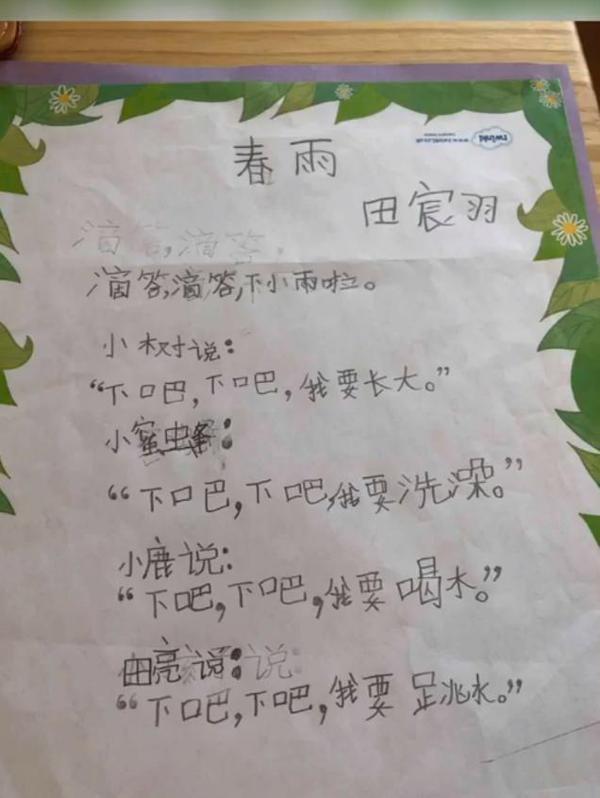 春雨
田宸羽
滴答,滴答,
滴答,滴答,下小雨啦。
小树说:
“下吧,下吧,我要长大。”
小蜜
“下吧,下吧,我要洗澡。”
小鹿说:
“下吧,下吧,我要喝水。”
田亮说:说
“下吧,下吧,我要跳水。”